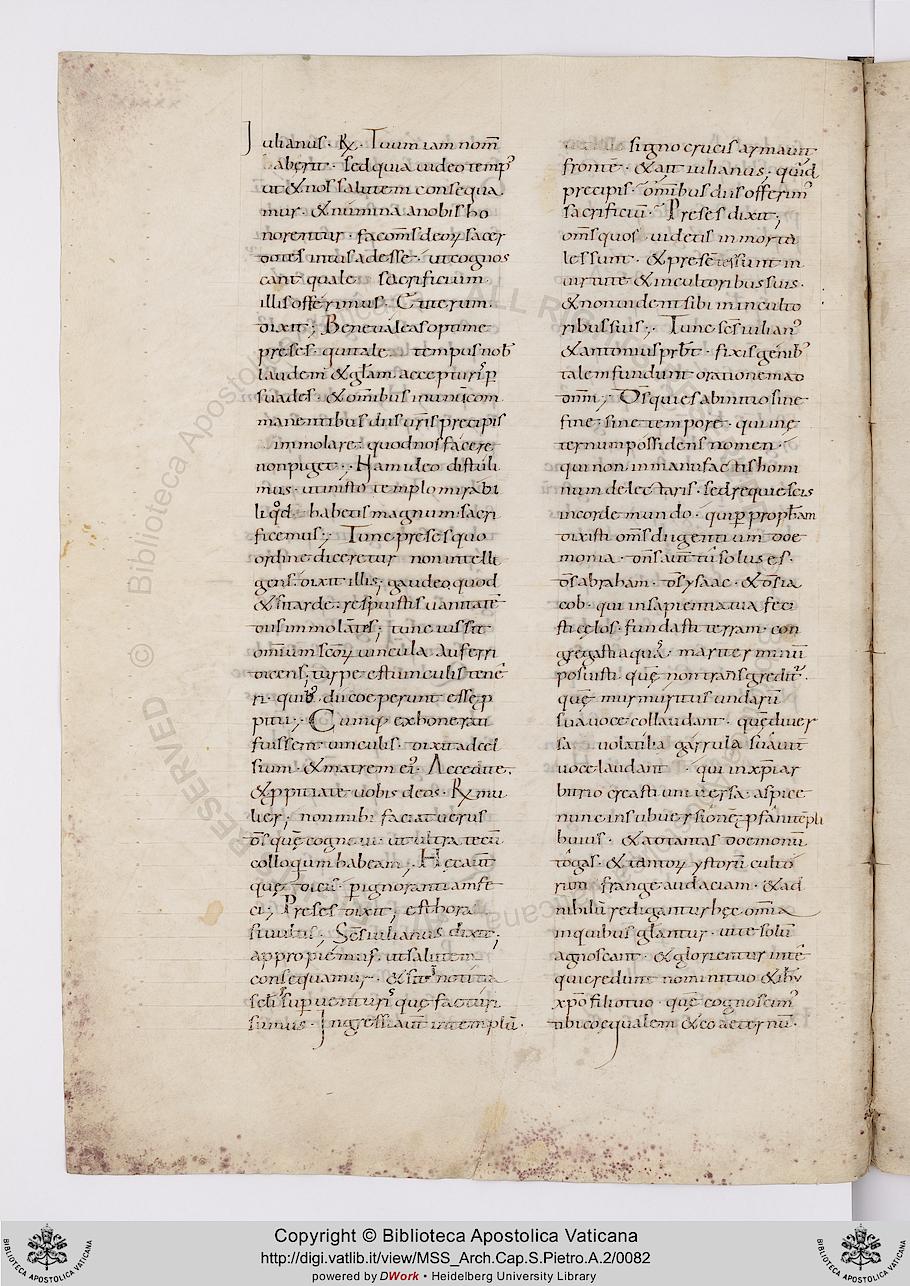 Iulianus · R̃ · Tuum iam nom̅
aberit · sed quia uideo temp᾽
ut & nos salutem consequa
mur · & numina a nobis ho
norentur · fac om̅s deoꝝ sacer
dotes intus adesse · ut cognos
cant quale sacrificium
illis offerimus · Ceterum
dixit; Bene ualeas optime
preses · qui tale tempus nob᾽
laudem & gl̅am
suades · & om̅ibus in unu̅ com
manentibus diis ur̅is precipis
immolare · quod nos facere
non piget · Nam ideo distuli
mus · ut in isto templo mirabi
li q̊d habetis magnum sacri
ficemus; Tunc preses quo
ordine diceretur non intelle
gens · dixit illis; gaudeo quod
& si tarde · respuistis uanitate̅
diis immolantes; tunc iussit
omnium sc̅oꝝ uincula auferri
dicens; turpe est uinculis tene
ri · quib᾽ dii coeperunt esse ꝓ
pitii; Cumq; exhonerati
fuissent uinculis · dixit ad cel
sium · & matrem ei᾽ · Accedite
& ꝓpitiate uobis deos · R̃ mu
lier; non mihi faciat uerus
d̅s quem cognoui · ut ultra tecu̅
colloquium habeam; Hec aut̅
que dicis · p ignorantiam fe
ci; Preses dixit; est hora
stuultis; Sc̅s iulianus dixit;
appropiemus · ut salutem
consequamur · & sit notitia
scl̅i superuenturi que facturi
sumus · Ingressi aut̅ in templu̅ ·
signo crucis armauit
fronte̅ · & ait iulianus · quid
precipis · om̅ibus diis offerim᾽
sacrificiu̅ · Preses dixit;
om̅s quos uidetis inmorta
les sunt · & presentes sunt in
uirtute & in cultoribus suis ·
& non uident sibi in inculto
ribus suis; Tunc sc̅s iulian᾽
& antonius prb̅t · fixis genib᾽
talem fundunt orationem ad
dn̅m; D̅s qui es ab initio sine
fine · sine tempore · qui in ę
ternum possidens nomen ·
qui non in manufactis homi
num delectaris · sed requiescis
in corde mundo · qui ꝑ proph̅am
dixisti om̅s dii gentium doe
monia · dn̅s aut̅ tu solus es ·
d̅s abraham · d̅s ysaac · & d̅s ia
cob · qui in sapientia tua feci
sti cęlos · fundasti terram · con
gregasti aquas · mari terminu̅
posuisti · quę non transgredit᾽ ·
quę murmuritus undaru̅
sua uoce collaudant · quę diuer
sa uolatilia garrula suaui
uoce laudant · qui in xp̅i ar
bitrio creasti uniuersa · aspice
nunc in subuersione̅
huius · & ad tantas doemonu̅
togas · & idioloꝝ ystoru̅ culto
rum frange audaciam · & ad
nihilu̅ redigantur hęc om̅ia
in quibus gl̅antur · ut te solu̅
agnoscant · & glorientur in te
qui credunt nomini tuo & ih̅u
xp̅o filio tuo · quę cognoscim᾽
tibi coęqualem & coaeternu̅ ·
© Biblioteca Apostolica Vaticana
ALL RIGHTS RESERVED
Copyright © Biblioteca Apostolica Vaticana
http://digi.vatlib.it/view/MSS_Arch.Cap.S.Pietro.A.2/0082
powered by DWork • Heidelberg University Library
BIBLIOTECA APOSTOLICA VATICANA
BIBLIOTECA APOSTOLICA VATICANA